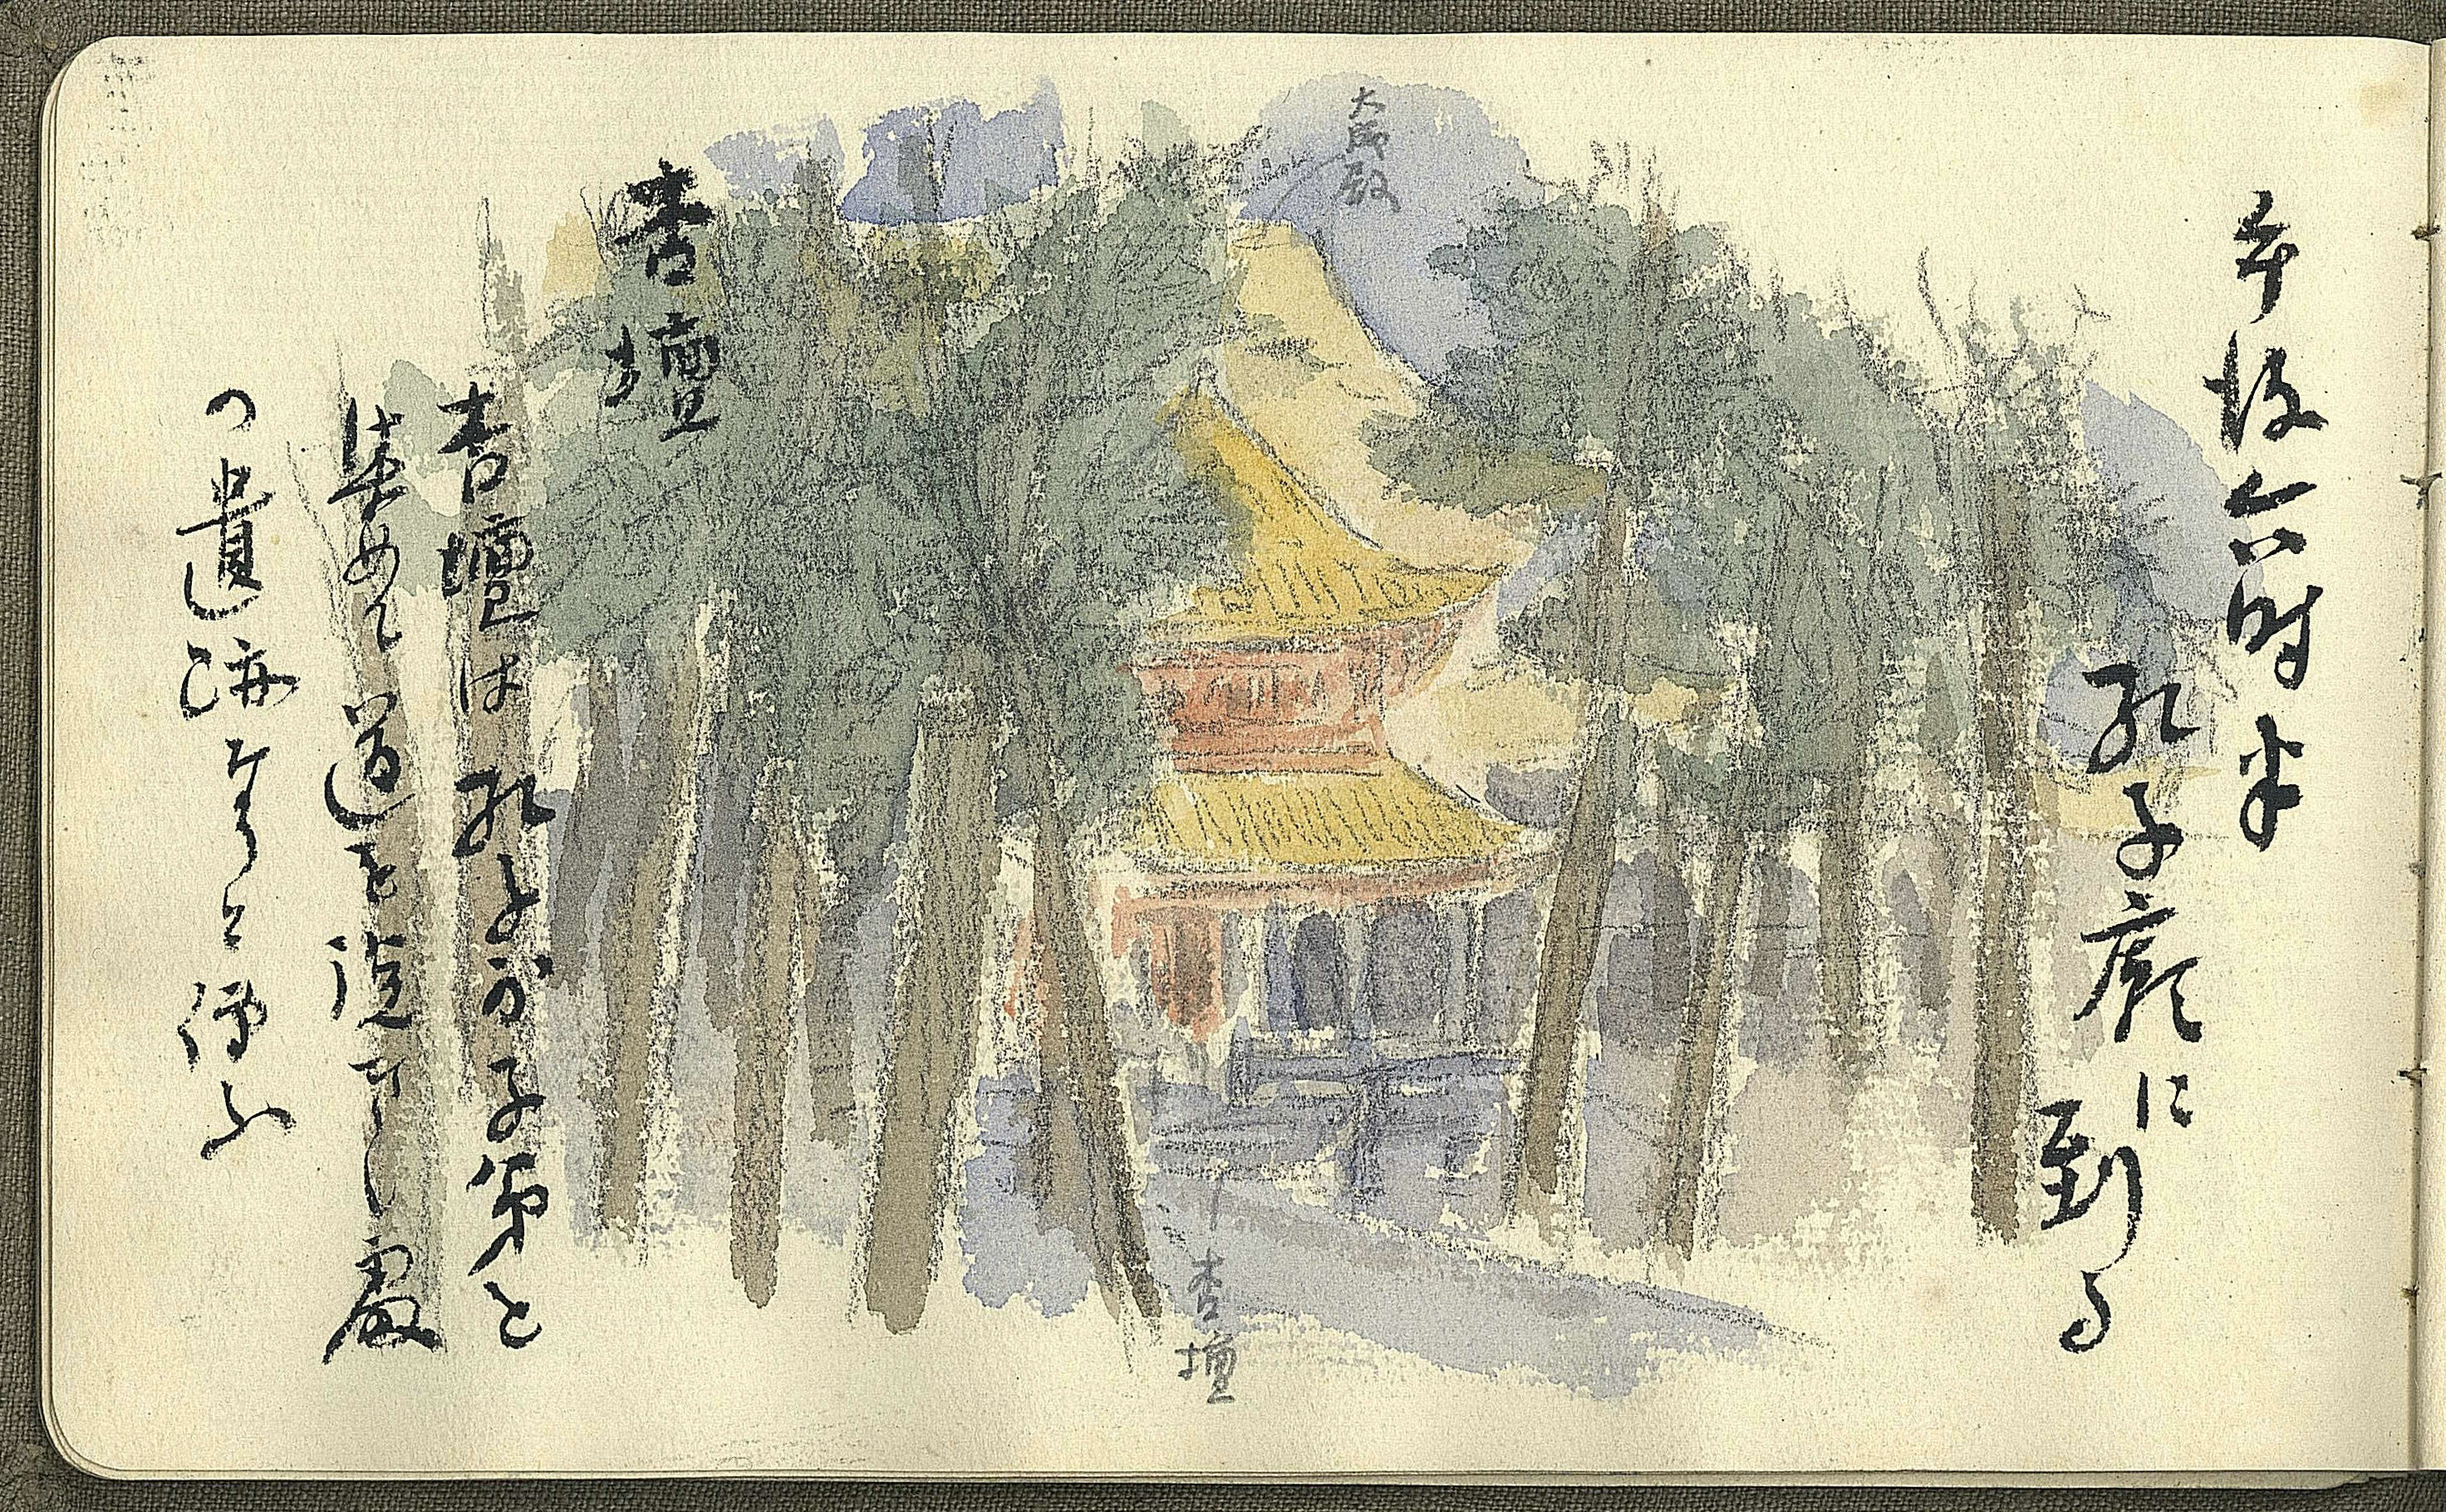 午後六時半
孔子廟に到る
大成殿
杏壇
杏壇
杏壇は孔子が子弟と
集めて道を説
の遺跡なりと傳ふ